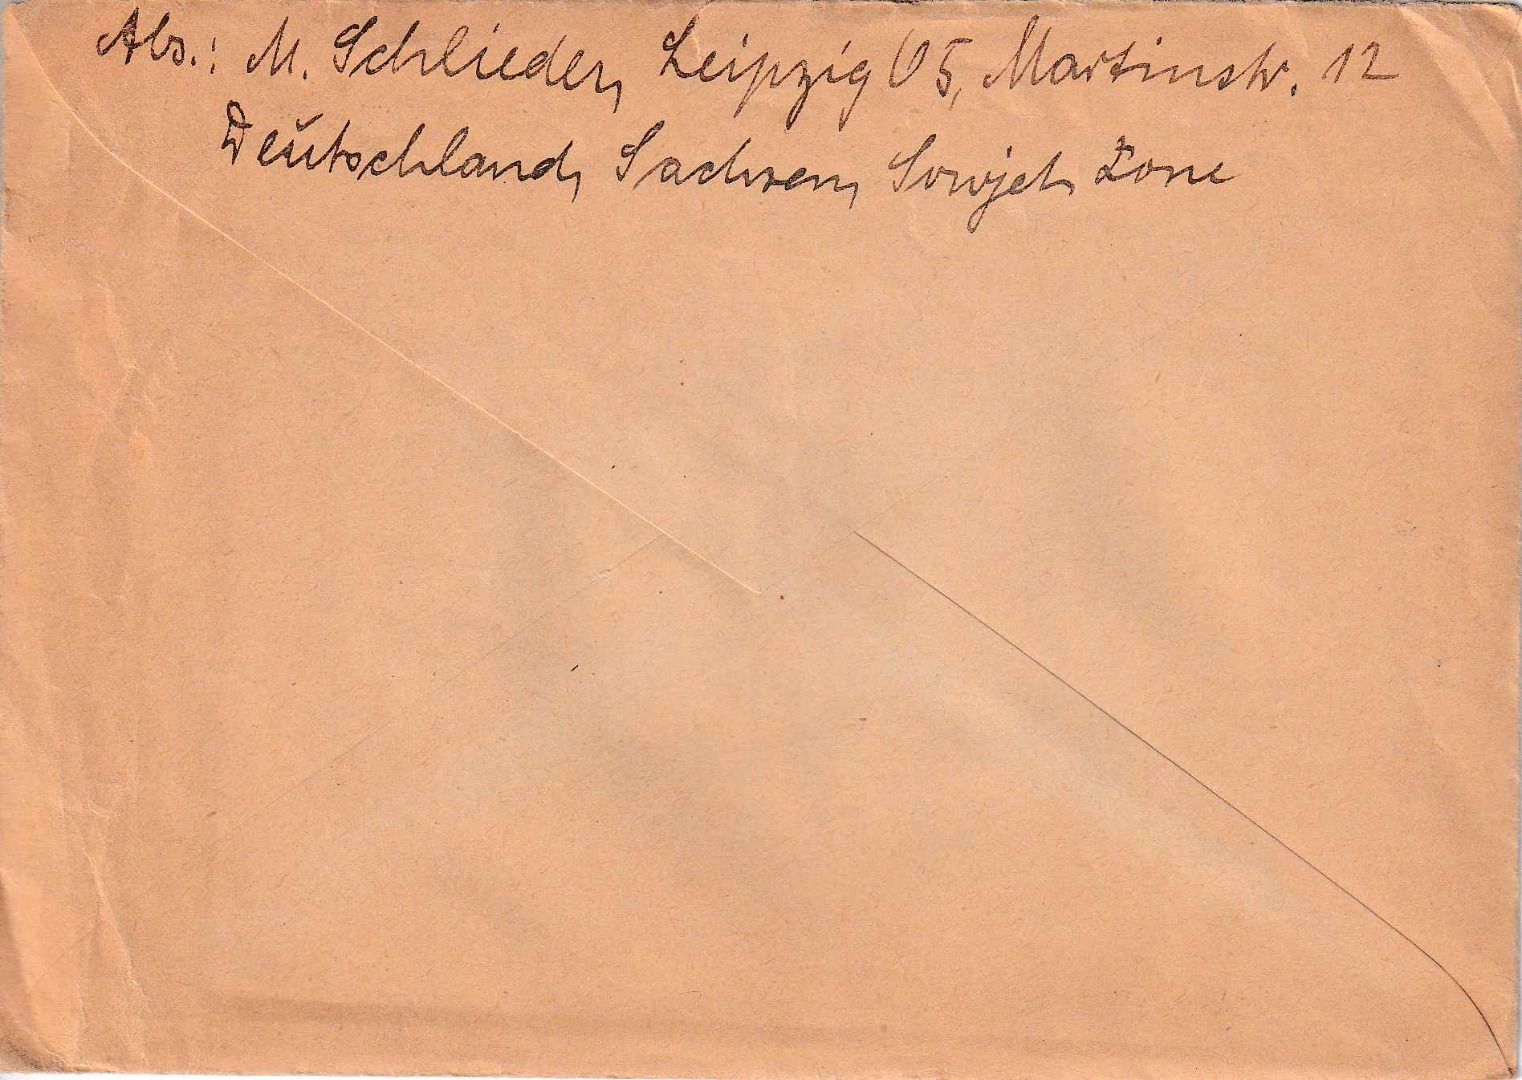 Abs.: M. Schlieder, Leipzig O5, Martinstr. 12
Deutschland, Sachsen, Sowjet. Zone